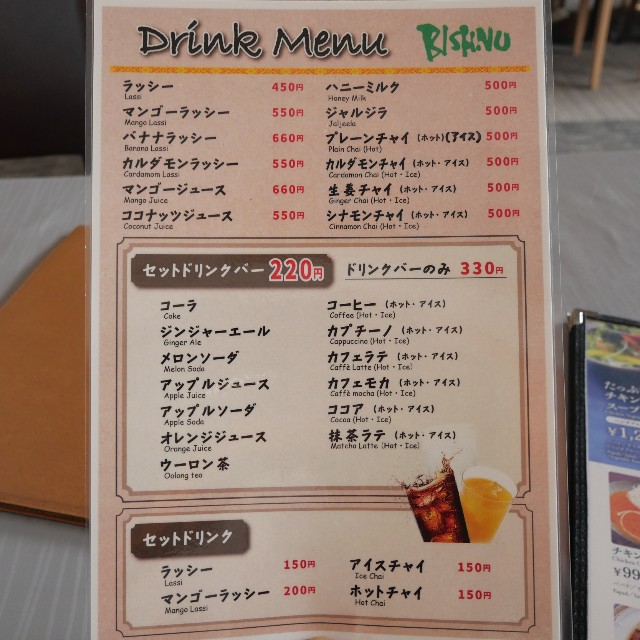 Drink Menu BISHNU
ラッシー 450円
Lassi
マンゴーラッシー 550円
Mango Lassi
バナナラッシー 660円
Banana Lassi
カルダモンラッシー 550円
Cardamom Lassi
マンゴージュース 660円
Mango Juice
ココナッツジュース 550円
Coconut Juice
ハニーミルク 500円
Honey Milk
ジャルジラ 500円
Jaljeela
プレーンチャイ (ホット)(アイス) 500円
Plain Chai (Hot)
カルダモンチャイ (ホット・アイス) 500円
Cardamon Chai (Hot・Ice)
生姜チャイ (ホット・アイス) 500円
Ginger Chai (Hot・Ice)
シナモンチャイ (ホット・アイス) 500円
Cinnamon Chai (Hot・Ice)
セットドリンクバー 220円 ドリンクバーのみ 330円
コーラ
Coke
ジンジャーエール
Ginger Ale
メロンソーダ
Melon Soda
アップルジュース
Apple Juice
アップルソーダ
Apple Soda
オレンジジュース
Orange Juice
ウーロン茶
Oolong tea
コーヒー (ホット・アイス)
Coffee (Hot・Ice)
カプチーノ (ホット・アイス)
Cappuccino (Hot・Ice)
カフェラテ (ホット・アイス)
Caffè Latte (Hot・Ice)
カフェモカ (ホット・アイス)
Caffè mocha (Hot・Ice)
ココア (ホット・アイス)
Cocoa (Hot・Ice)
抹茶ラテ (ホット・アイス)
Matcha Latte (Hot・Ice)
セットドリンク
ラッシー 150円
Lassi
マンゴーラッシー 200円
Mango Lassi
アイスチャイ 150円
Ice Chai
ホットチャイ 150円
Hot Chai
チキン
スープ
チキン
¥99